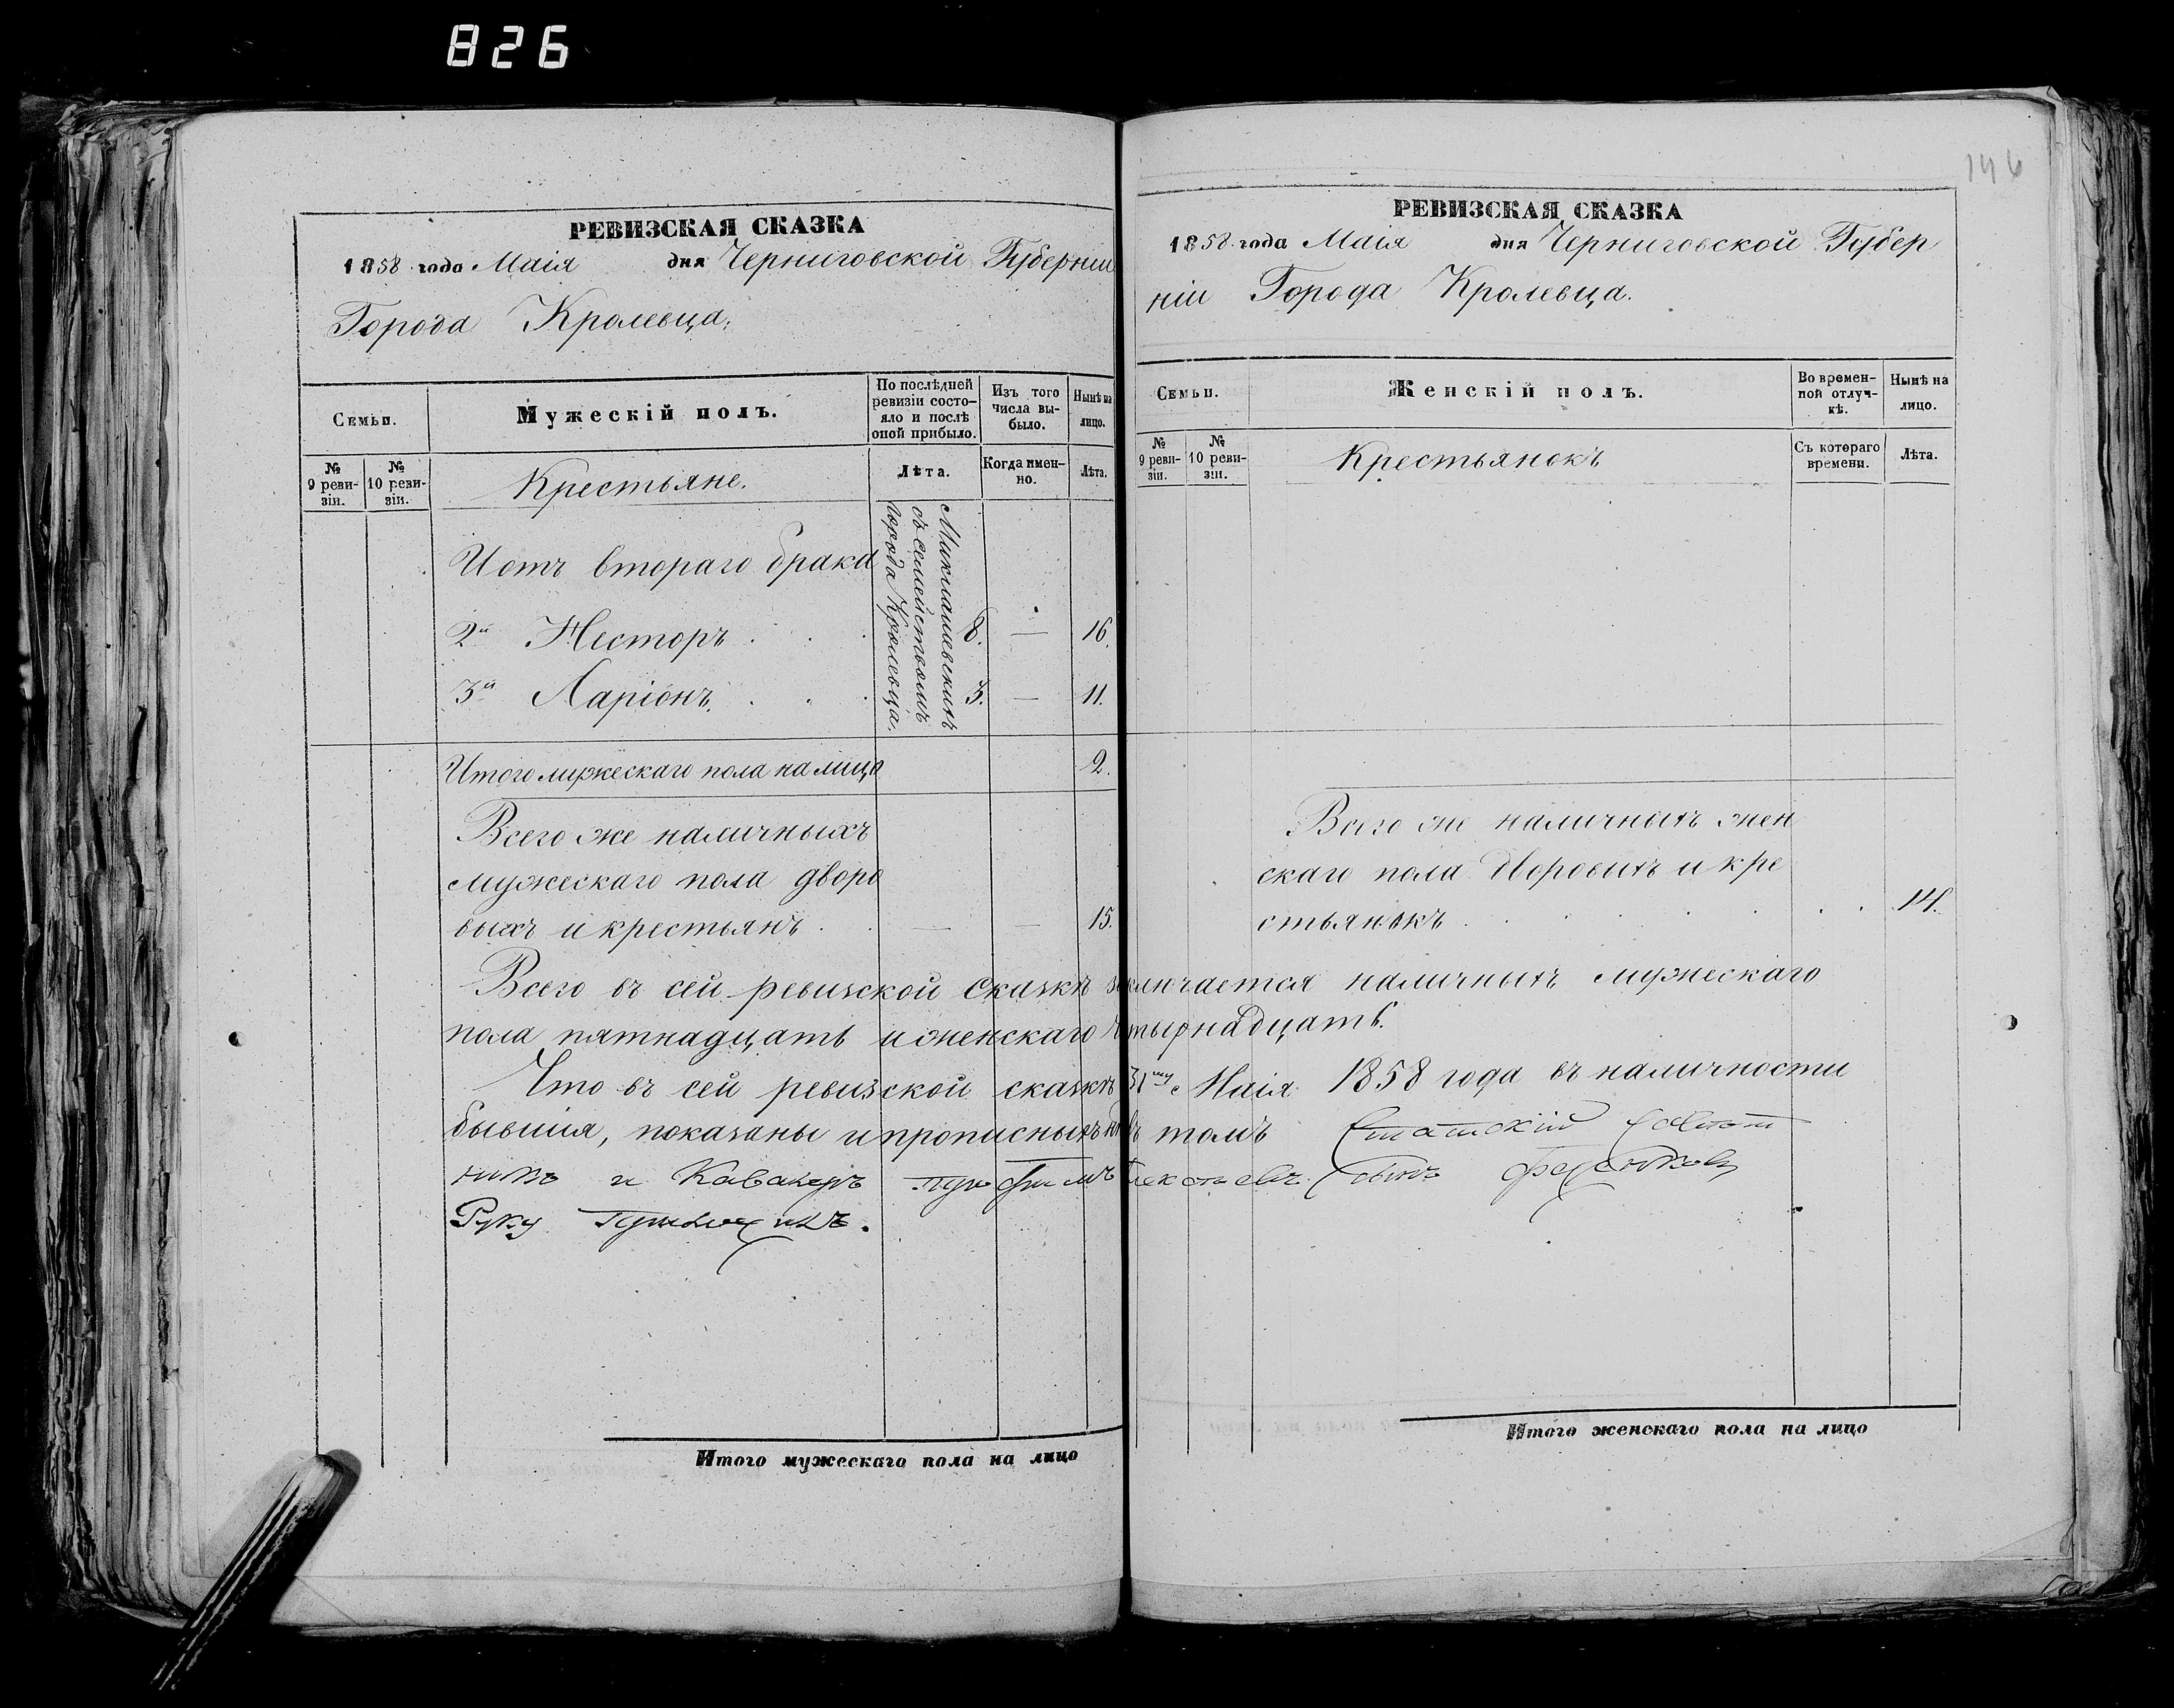 826
146
РЕВИЗСКАЯ СКАЗКА
1858 года Маія дня Черниговской Губерніи
Города Кролевца.
Семьи.
Мужескій полъ.
По послѣдней ревизіи состояло и послѣ оной прибыло.
Изъ того числа выбыло.
Нынѣ на лицо.
№ 9 ревизіи.
№ 10 ревизіи.
Крестьяне.
Лѣта.
Когда именно.
Лѣта.
съ семействомъ
города Кролевца.
И отъ втораго брака
2й Несторъ 8. — 16.
3й Ларіонъ 3. — 11.
Итого мужескаго пола на лицо 2.
Всего же наличныхъ
мужескаго пола дворо
выхъ и крестьянъ — — 15.
РЕВИЗСКАЯ СКАЗКА
1858 года Маія дня Черниговской Губер
ніи Города Кролевца.
Семьи.
Женскій полъ.
Во временной отлучкѣ.
Нынѣ на лицо.
№ 9 ревизіи.
№ 10 ревизіи.
Крестьянокъ
Съ котораго времени.
Лѣта.
Всего же наличныхъ жен
скаго пола дворовыхъ и кре
стьянокъ 14.
Всего въ сей ревизской сказкѣ заключается наличныхъ мужескаго
пола пятнадцать и женскаго четырнадцать.
Что въ сей ревизской сказкѣ 31му Маія 1858 года въ наличности
бывшія, показаны и прописныхъ нѣтъ въ томъ Статскій Совѣт
никъ и Кавалеръ сынъ
Руку приложилъ.
Итого мужескаго пола на лицо
Итого женскаго пола на лицо